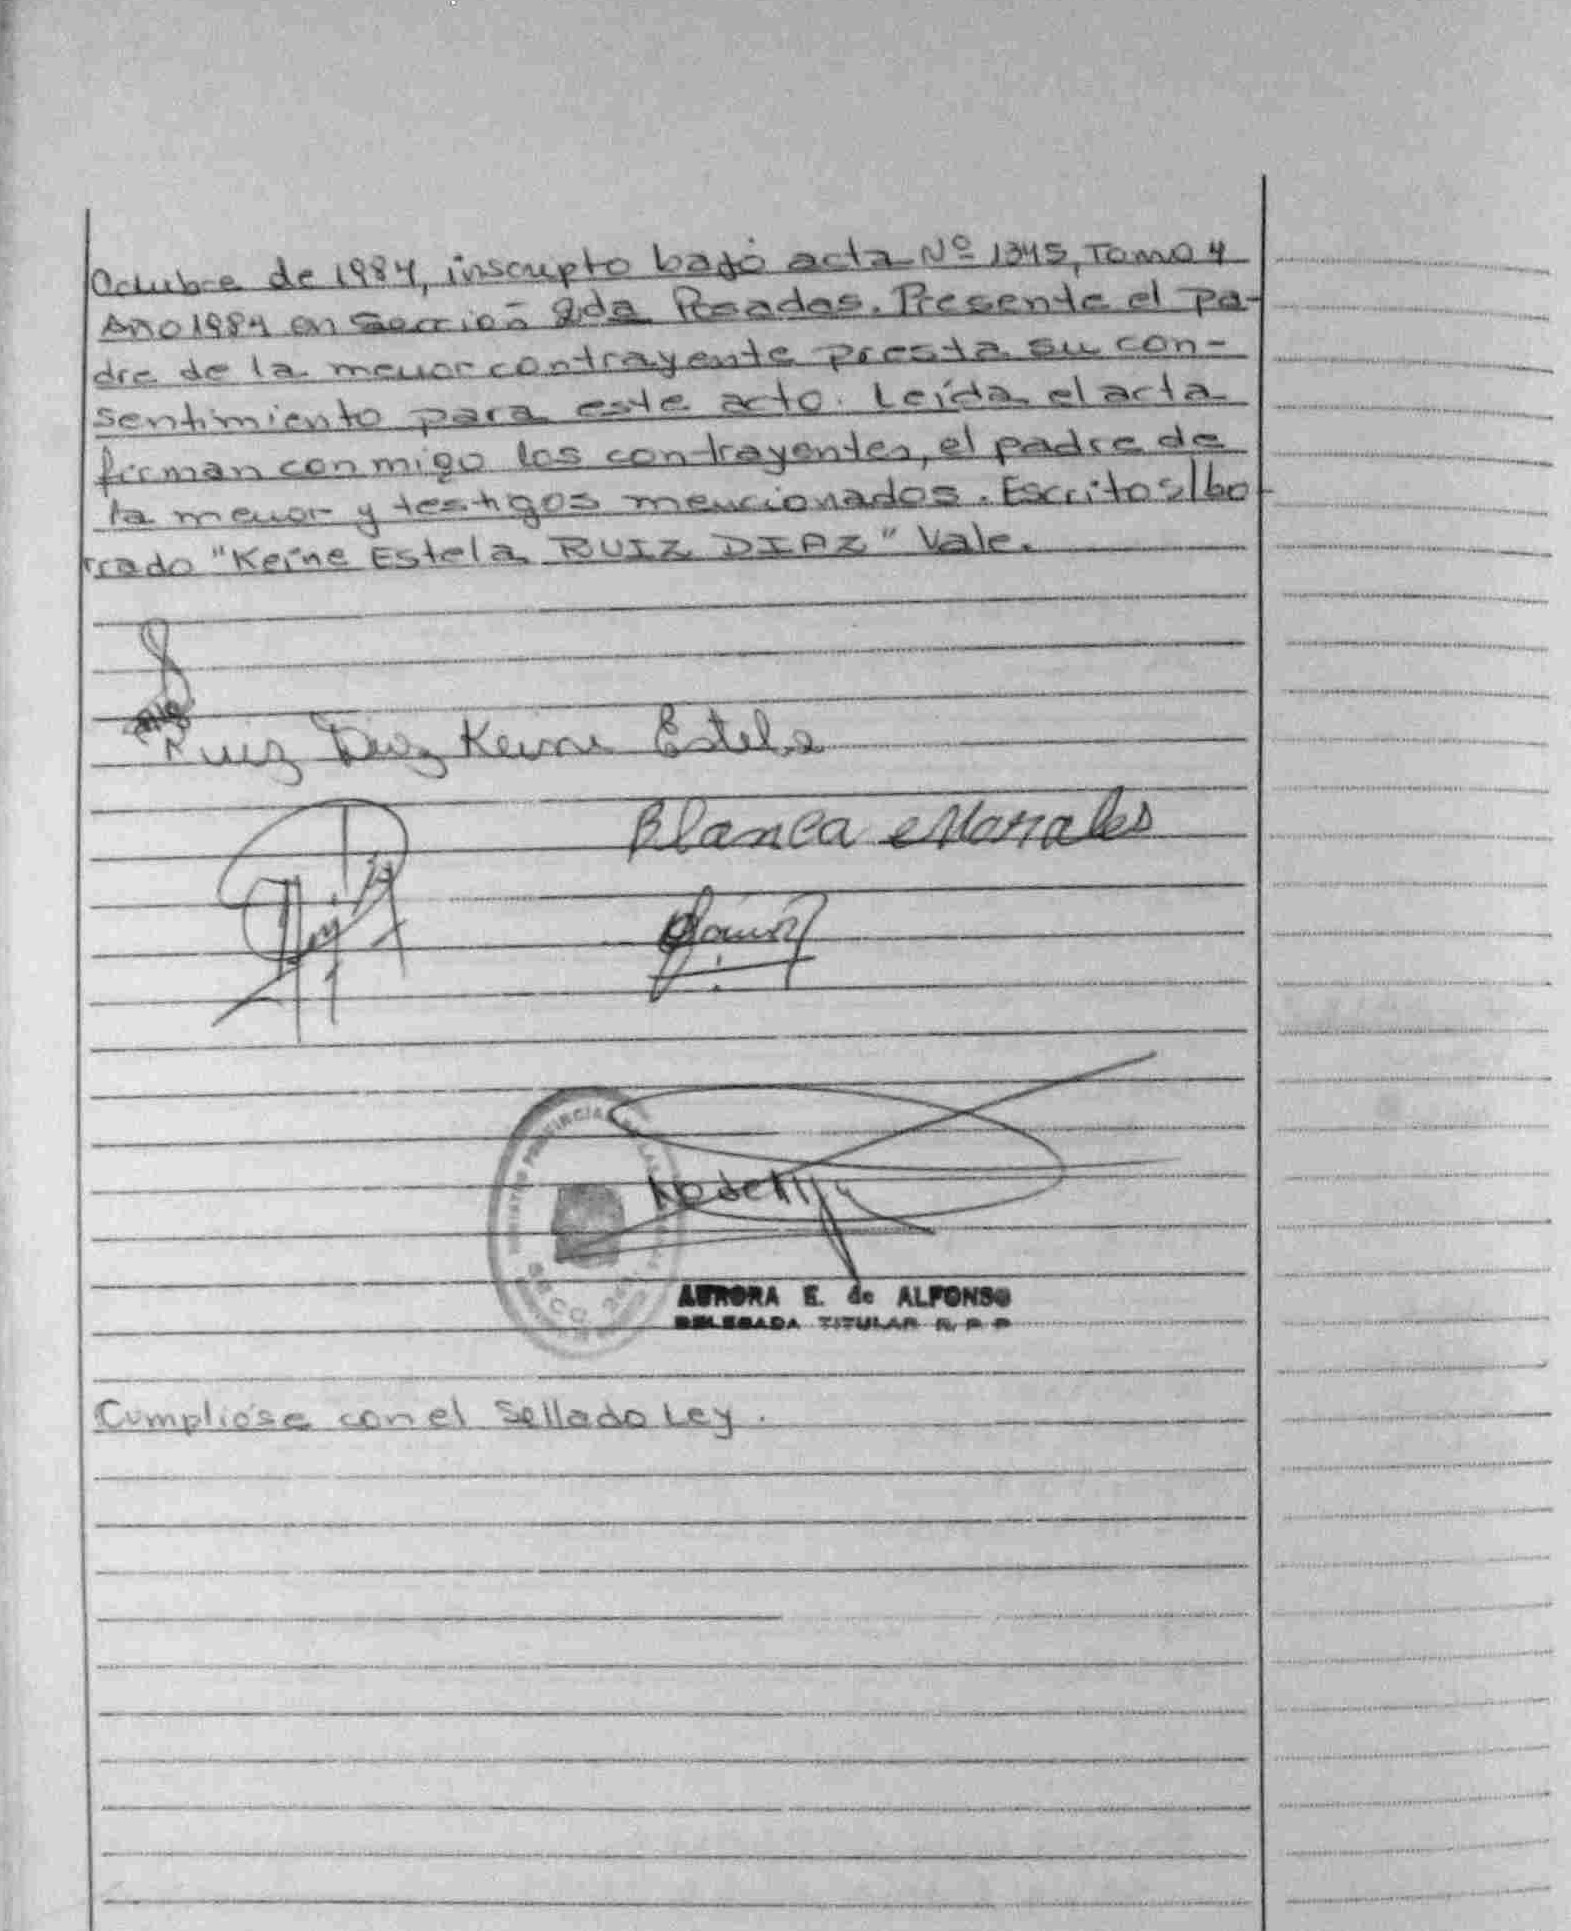 Octubre de 1984, inscripto bajo acta Nº 1345, Tomo 4
Año 1984 en Sección 2da Posadas. Presente el pa-
dre de la menor contrayente presta su con-
sentimiento para este acto. Leída el acta
firman conmigo los contrayentes, el padre de
la menor y testigos mencionados. Escrito s/bo
rrado "Keine Estela RUIZ DIAZ" Vale.
Ruiz Diaz Keine Estela
Blanca Morales
REGISTRO PROVINCIAL DE LAS
SECC. 2da
AURORA E. de ALFONSO
DELEGADA TITULAR R. P. P.
Cumplióse con el Sellado Ley.